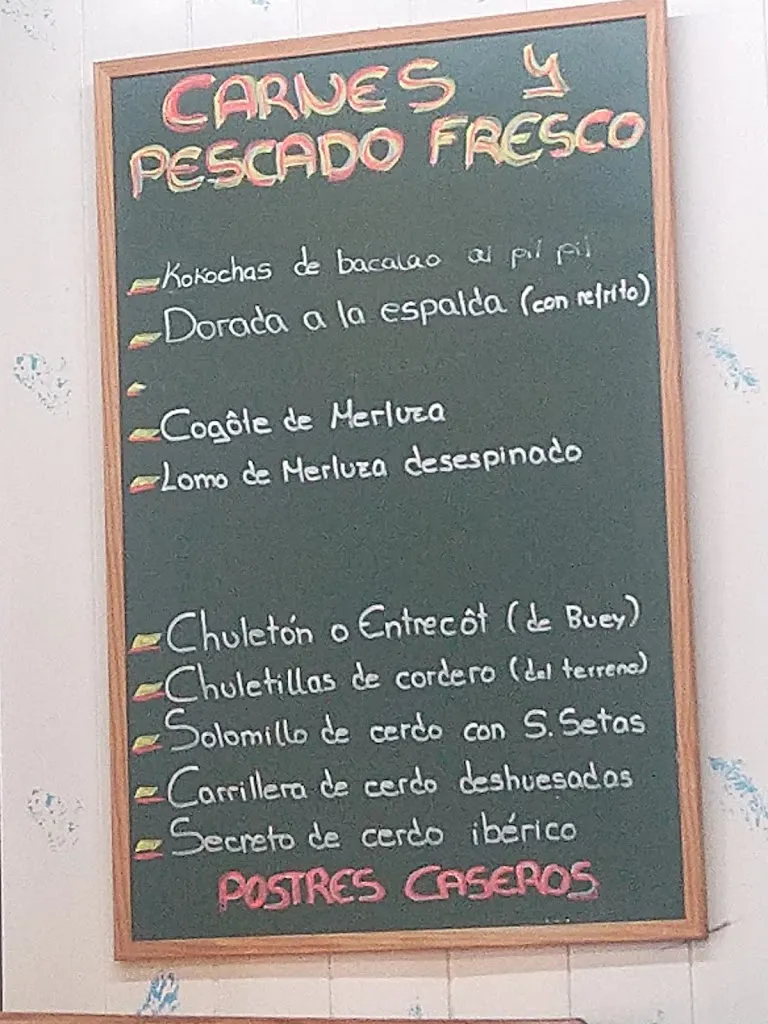 CARNES Y
PESCADO FRESCO
Kokochas de bacalao al pil pil
Dorada a la espalda (con refrito)
Cogôte de Merluza
Lomo de Merluza desespinado
Chuletón o Entrecôt (de Buey)
Chuletillas de cordero (del terreno)
Solomillo de cerdo con S. Setas
Carrillera de cerdo deshuesadas
Secreto de cerdo ibérico
POSTRES CASEROS